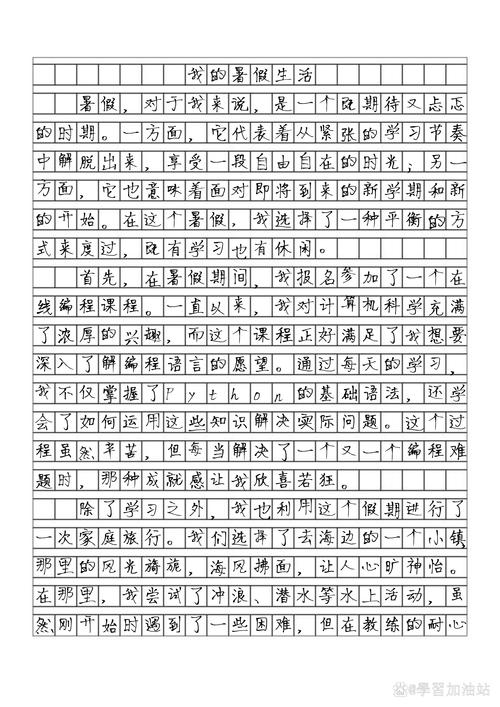 我的暑假生活
暑假，对于我来说，是一个既期待又忐忑
的时期。一方面，它代表着从紧张的学习节奏
中解脱出来，享受一段自由自在的时光；另一
方面，它也意味着面对即将到来的新学期和新
的开始。在这个暑假，我选择了一种平衡的方
式来度过，既有学习也有休闲。
首先，在暑假期间，我报名参加了一个在
线编程课程。一直以来，我对计算机科学充满
了浓厚的兴趣，而这个课程正好满足了我想要
深入了解编程语言的愿望。通过每天的学习，
我不仅掌握了Python的基础语法，还学
会了如何运用这些知识解决实际问题。这个过
程虽然辛苦，但每当解决了一个又一个编程难
题时，那种成就感让我欣喜若狂。
除了学习之外，我也利用这个假期进行了
一次家庭旅行。我们选择了去海边的一个小镇
那里的风光旖旎，海风拂面，让人心旷神怡。
在那里，我尝试了冲浪、潜水等水上活动，虽
然刚开始时遇到了一些困难，但在教练的耐心
@學習加油站